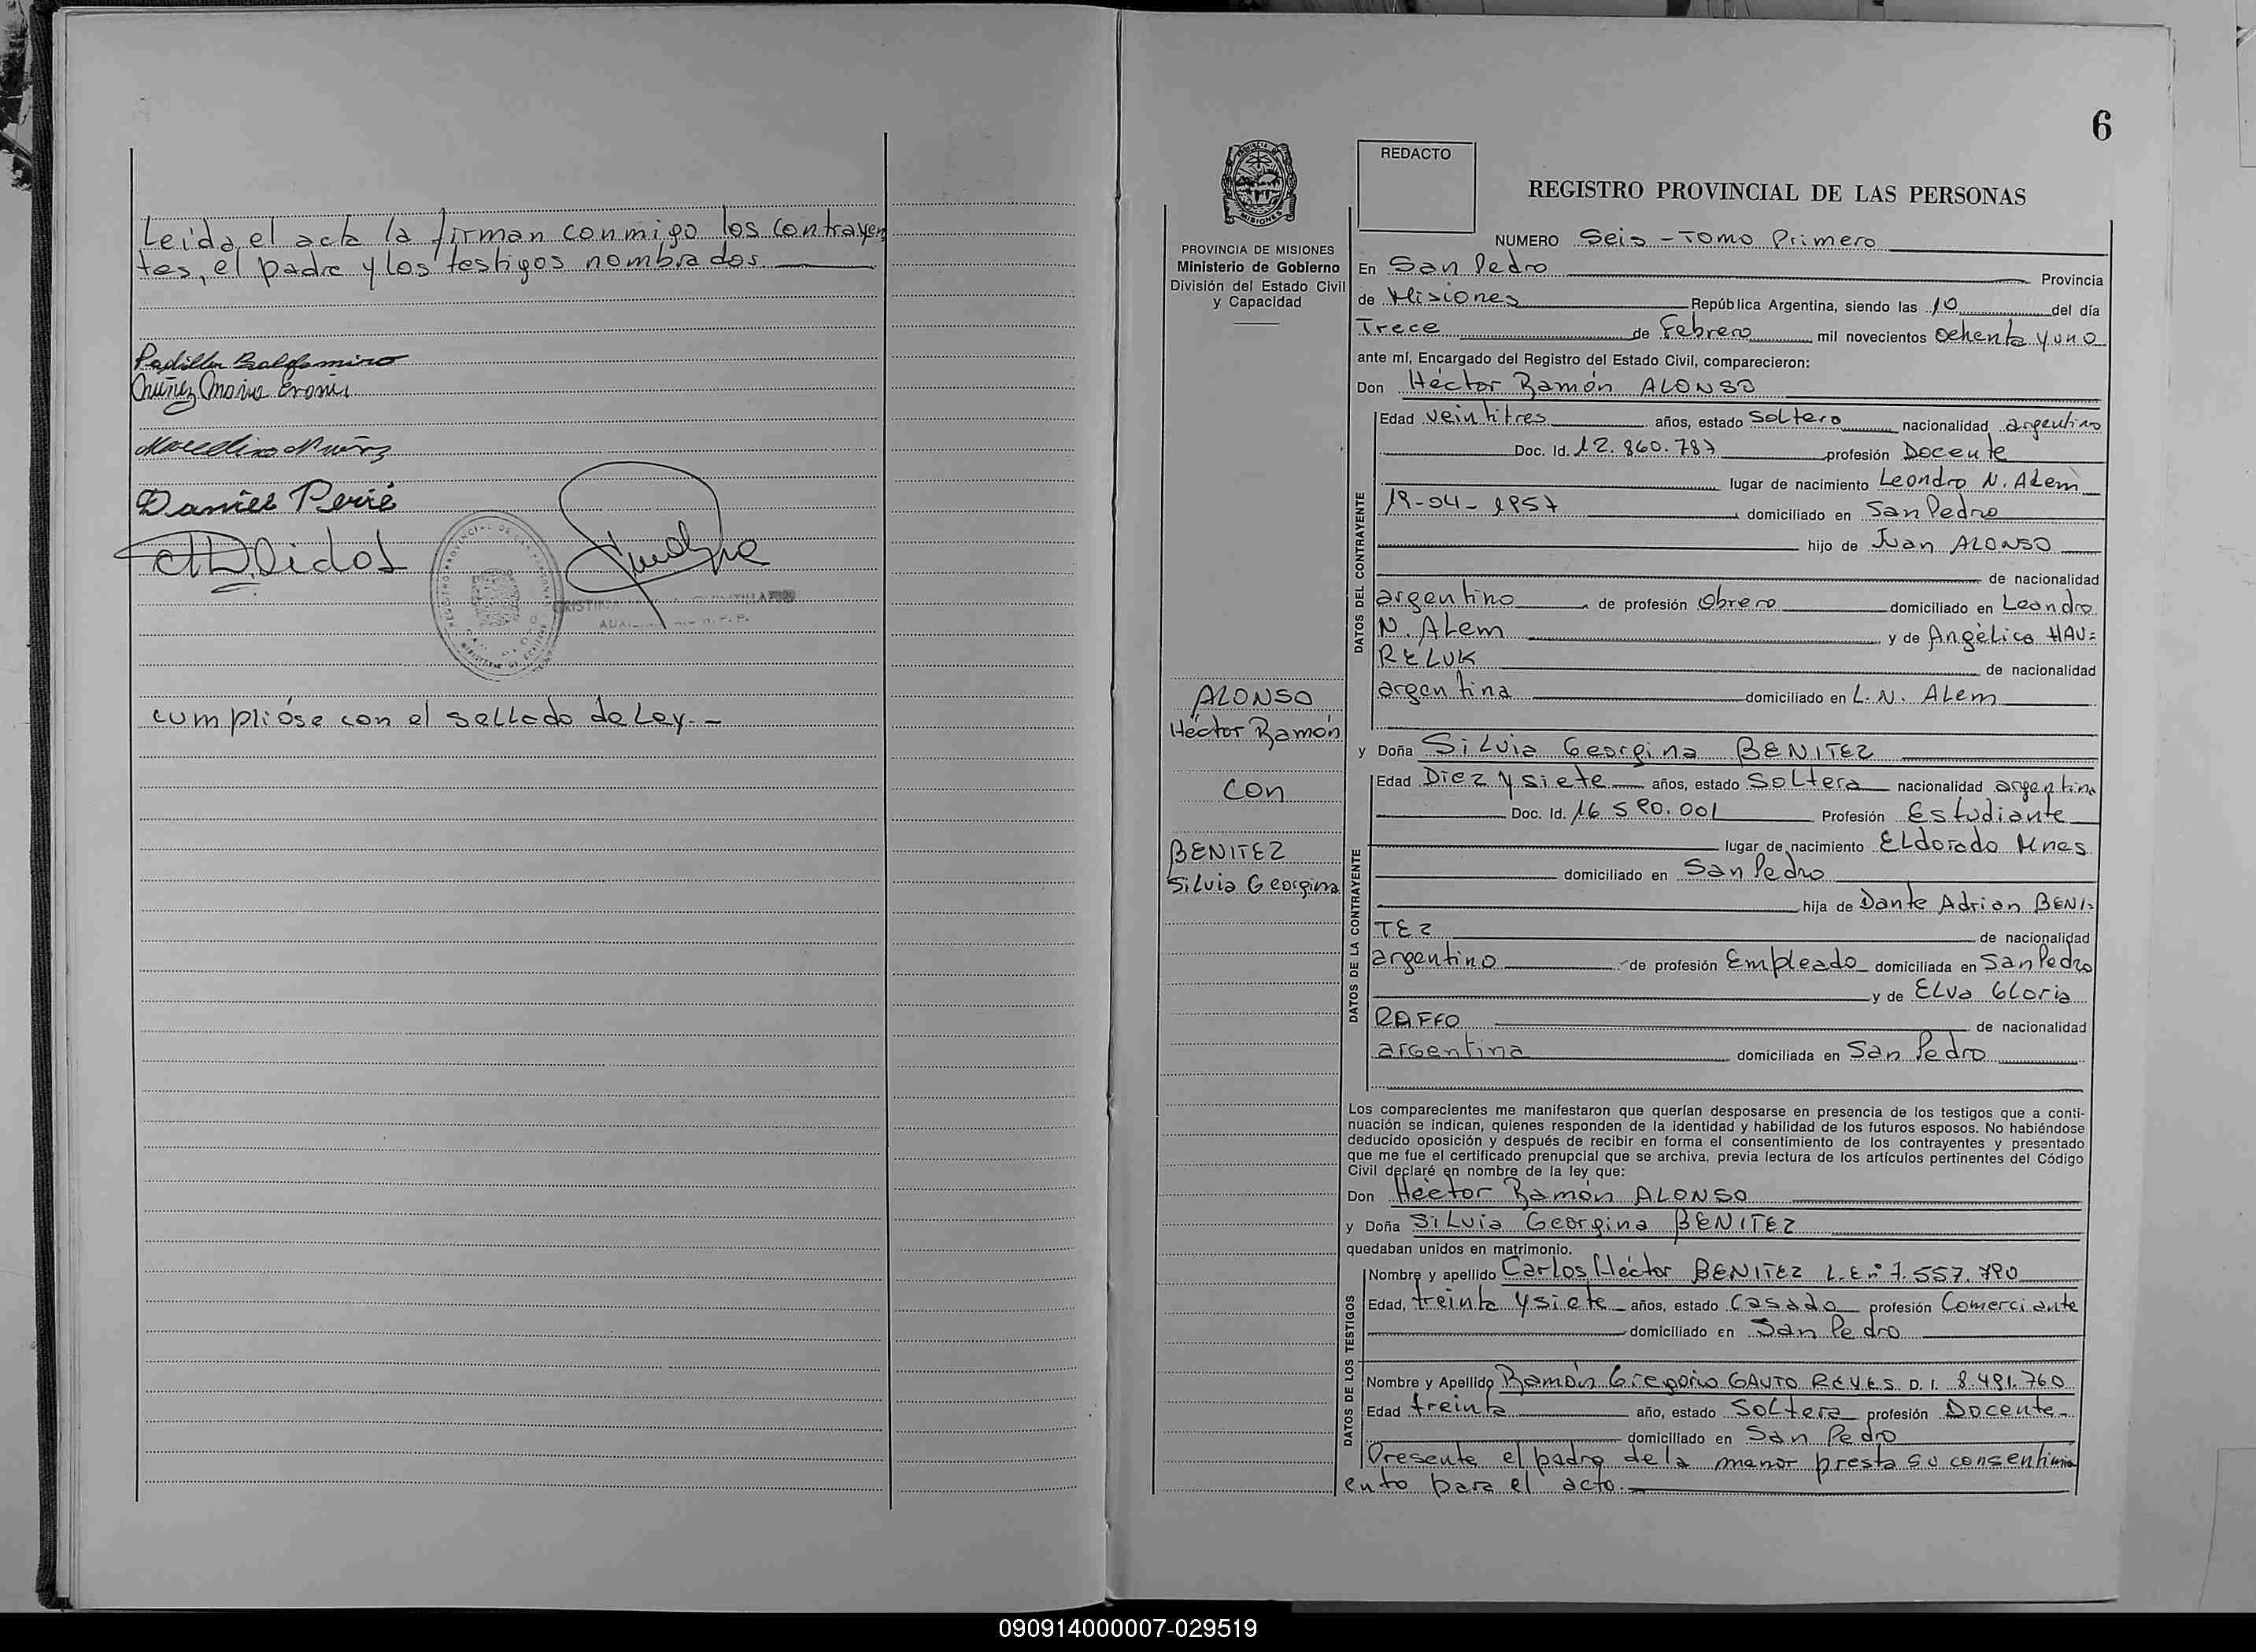 Leída el acta la firman conmigo los contrayen
tes, el padre y los testigos nombrados
Padilla Baldomiro
Núñez María
Marcelino Núñez
Daniel
cumplióse con el sellado de Ley.-
6
REDACTO
REGISTRO PROVINCIAL DE LAS PERSONAS
PROVINCIA DE MISIONES
Ministerio de Gobierno
División del Estado Civil
y Capacidad
NUMERO Seis - Tomo Primero
En San Pedro Provincia
de Misiones República Argentina, siendo las 10 del día
Trece de Febrero mil novecientos ochenta y uno
ante mí, Encargado del Registro del Estado Civil, comparecieron:
Don Héctor Ramón ALONSO
DATOS DEL CONTRAYENTE
Edad veintitres años, estado Soltero nacionalidad argentino
Doc. Id. 12.860.787 profesión Docente
lugar de nacimiento Leandro N. ALem
19-04-1957 domiciliado en San Pedro
hijo de Juan ALONSO
de nacionalidad
argentino de profesión Obrero domiciliado en Leandro
N. ALem y de Angélica HAU=
RELUK de nacionalidad
argentina domiciliado en L. N. ALem
ALONSO
Héctor Ramón
con
BENITEZ
Silvia Georgina
y Doña Silvia Georgina BENITEZ
DATOS DE LA CONTRAYENTE
Edad Diez y siete años, estado Soltera nacionalidad argentina
Doc. Id. 16.590.001 Profesión Estudiante
lugar de nacimiento ELdorado Mnes
domiciliado en San Pedro
hija de Dante Adrian BENI=
TEZ de nacionalidad
argentino de profesión Empleado domiciliada en San Pedro
y de Elva Gloria
RAFFO de nacionalidad
argentina domiciliada en San Pedro
Los comparecientes me manifestaron que querían desposarse en presencia de los testigos que a conti-
nuación se indican, quienes responden de la identidad y habilidad de los futuros esposos. No habiéndose
deducido oposición y después de recibir en forma el consentimiento de los contrayentes y presentado
que me fue el certificado prenupcial que se archiva, previa lectura de los artículos pertinentes del Código
Civil declaré en nombre de la ley que:
Don Héctor Ramón ALONSO
y Doña Silvia Georgina BENITEZ
quedaban unidos en matrimonio.
DATOS DE LOS TESTIGOS
Nombre y apellido Carlos Héctor BENITEZ L.E nº 7.557.790
Edad, treinta y siete años, estado Casado profesión Comerciante
domiciliado en San Pedro
Nombre y Apellido Ramón Gregorio GAUTO REYES D. I. 8.491.760
Edad treinta año, estado Soltera profesión Docente
domiciliado en San Pedro
Presente el padre de la menor presta su consentimi
ento para el acto.
090914000007-029519